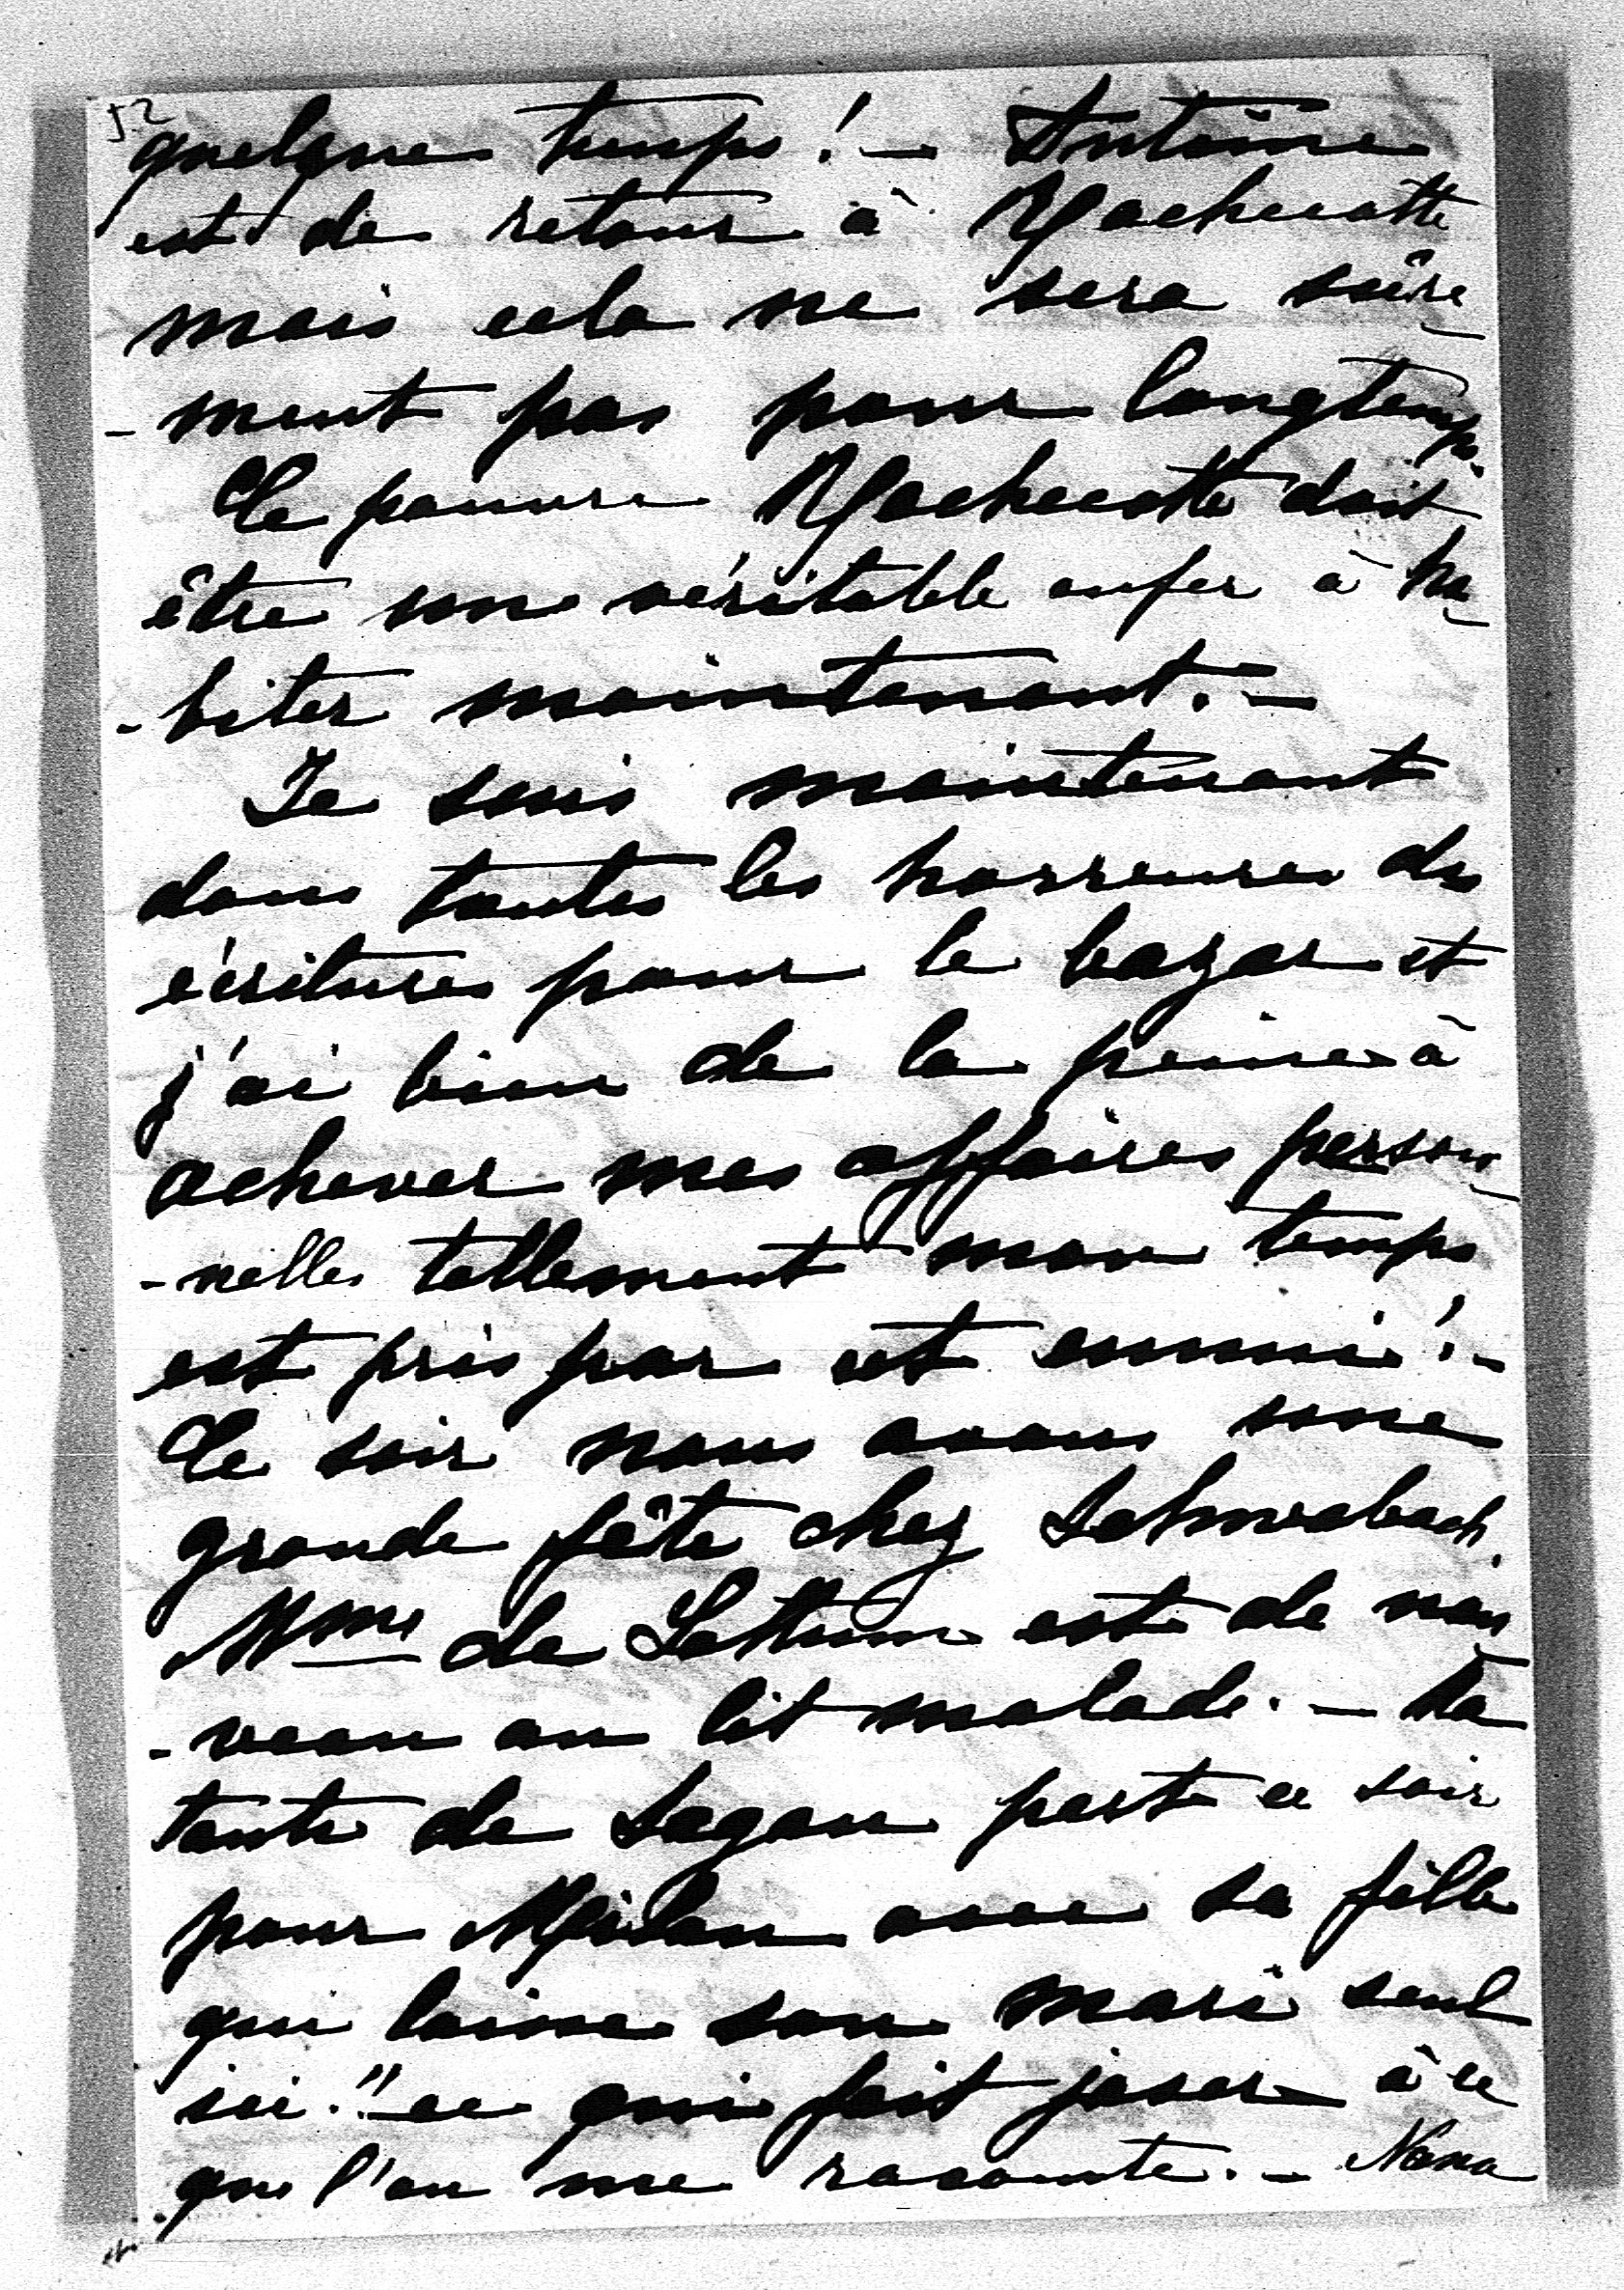 52
quelque temps! — Antoine
est de retour à Rochecotte
mais cela ne sera sûre
-ment pas pour longtemps.
Ce pauvre Rochecotte doit
être un véritable enfer à ha
-biter maintenant. —
Je suis maintenant
dans toutes les horreures des
écritures pour le bazar et
j'ai bien de la peine à
achever mes affaires person
-nelles tellement mon temps
est pris par cet ennui! -
Ce soir nous avons une
grande fête chez Schwabach.
Mme de Lottum est de nou
-veau au lit malade. — Ta
tante de Sagan part ce soir
pour Milan avec sa fille
qui laisse son mari seul
ici!! ce qui fait jaser à ce
que l'on me raconte. — Nana